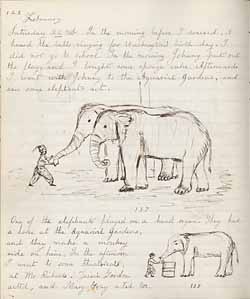 122
February
Saturday 22nd. In the morning before I dressed, I
heard the bells ringing for Washington's birth-day. I
did not go to school. In the morning Johnny put out
the flag, and I bought some sponge cake. Afterwards
I went with Johnny to the Aquarial Gardens, and
saw some elephants act.
123
One of the elephants played on a hand organ. They had
a seal at the Aquarial Gardens,
and they make a monkey
ride on him. In the afternoon
I went to some theatricals
at Mr. Gordon
acted, and Mary Gray acted too.
123